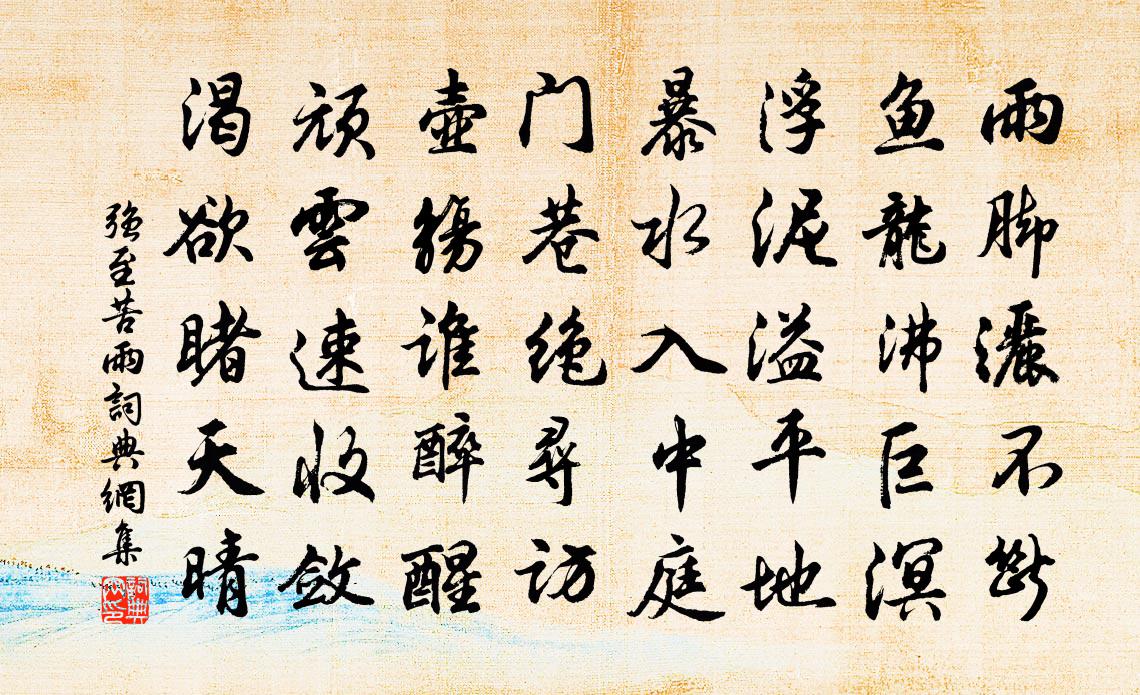 雨脚灑不斷
鱼龍沸巨溟
浮泥溢平地
暴水入中庭
门巷绝尋访
壺觴谁醉醒
顽雲速收斂
渴欲睹天晴
強至苦雨詞典網集